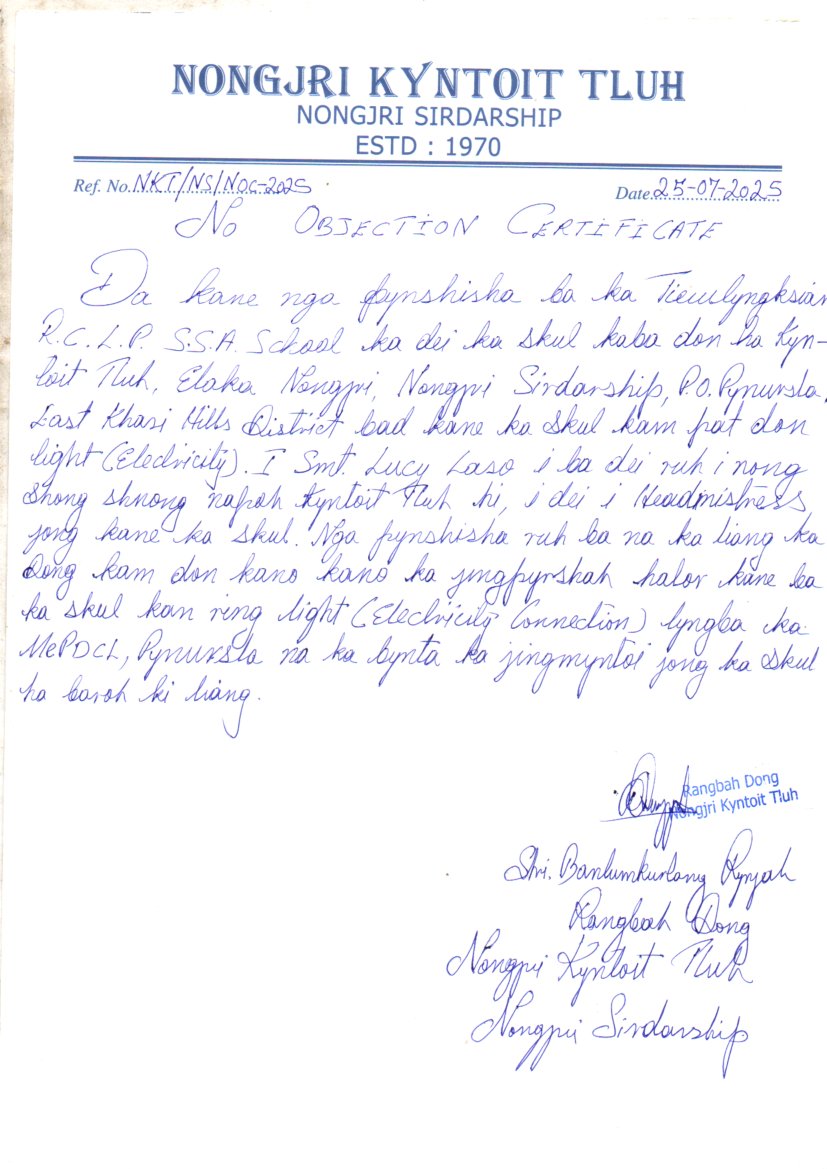 NONGJRI KYNTOIT TLUH
NONGJRI SIRDARSHIP
ESTD : 1970
Ref. No. NKT/NS/NOC-2025 Date 25-07-2025
No OBJECTiON CERTiFiCATE
Da kane nga pynshisha ba ka Tiewlyngksiar
R.C.L.P. S.S.A. School ka dei ka skul kaba don ha Kyn-
toit Tluh, Elaka Nongjri, Nongjri Sirdarship, P.O. Pynursla,
East Khasi Hills District bad kane ka skul kam pat don
light (Electricity). I Smt. Lucy Laso i ba dei ruh i nong
shong shnong napoh Kyntoit Tluh hi, i dei i Headmistress
jong kane ka skul. Nga pynshisha ruh ba na ka liang ka
Dong kam don kano kano ka jingpyrshah halor kane ba
ka skul kan ring light (Electricity Connection) lyngba ka
MePDCL, Pynursla na ka bynta ka jingmyntoi jong ka skul
ha baroh ki liang.
Rangbah Dong
Nongjri Kyntoit Tluh
Shri. Banlumkurlang Rynjah
Rangbah Dong
Nongjri Kyntoit Tluh
Nongjri Sirdarship